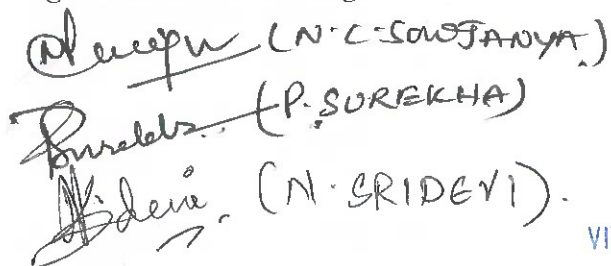 (N.C.SOWJANYA.)
(P.SUREKHA)
Sridevi. (N.SRIDEVI).
VI